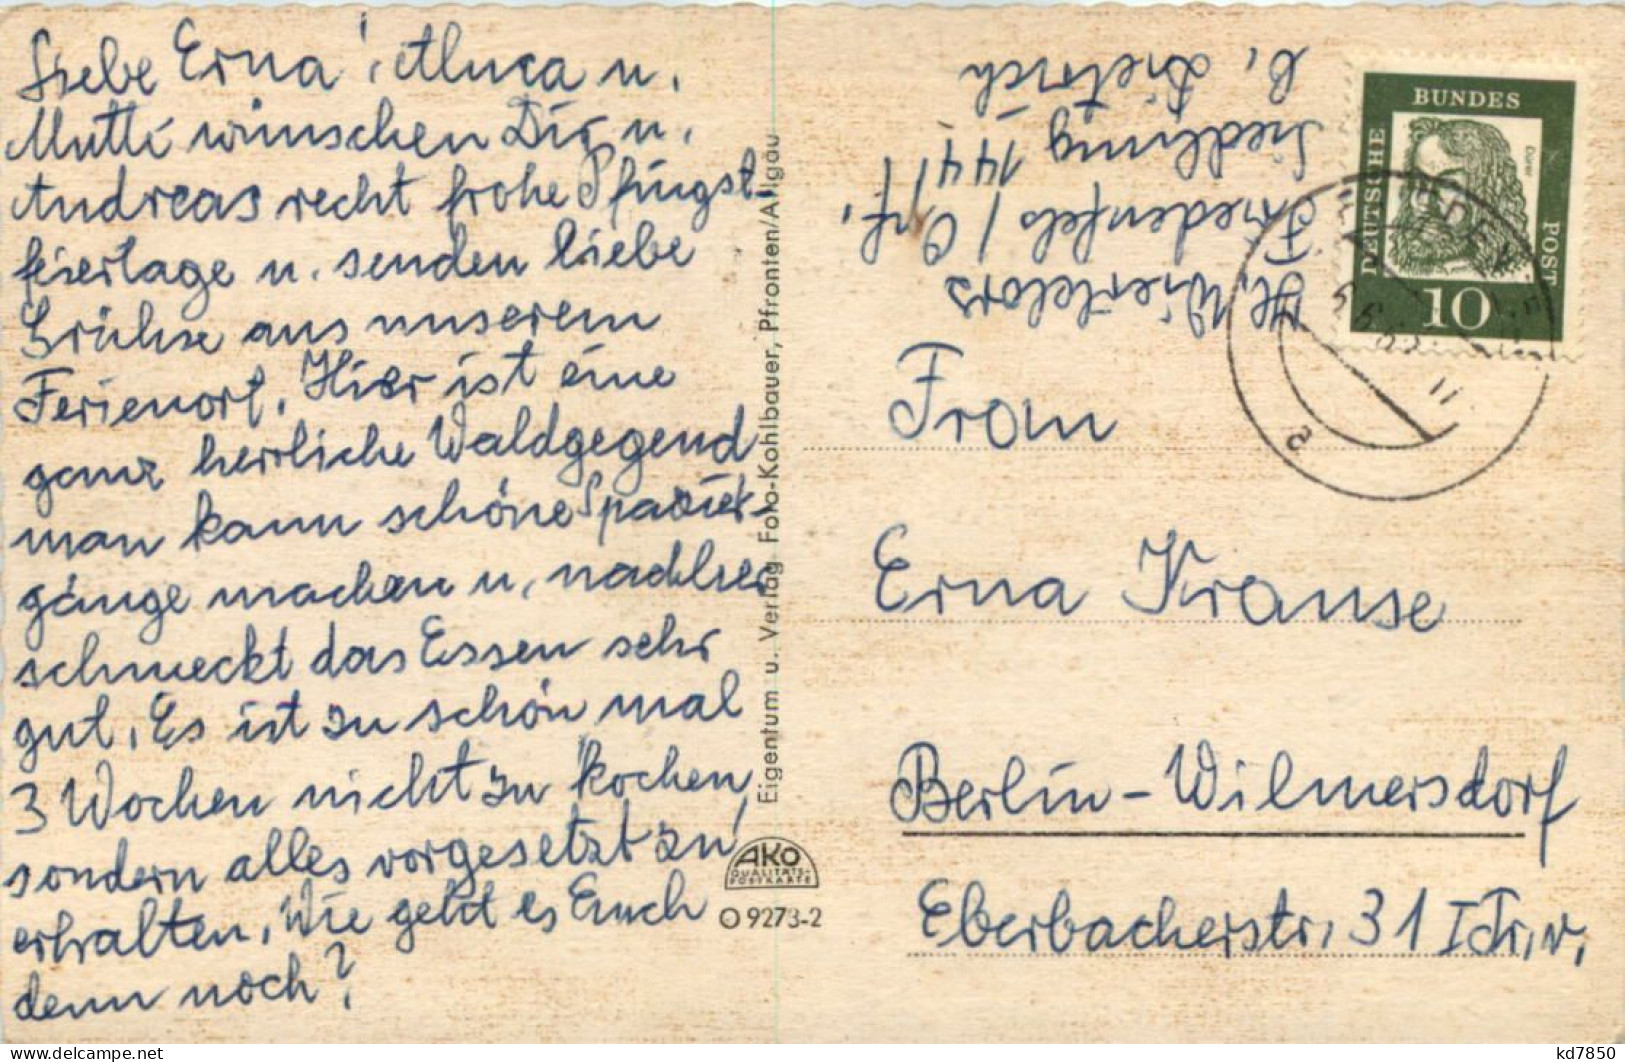 Liebe Erna! Anca u.
Mutti wünschen Dir u.
Andreas recht frohe Pfingst-
feiertage u. senden liebe
Grühse aus unserem
Ferienort. Hier ist eine
ganz herrliche Waldgegend
man kann schöne Spazier-
gänge machen u. nachher
schmeckt das Essen sehr
gut. Es ist zu schön mal
3 Wochen nicht zu kochen,
sondern alles vorgesetzt zu
erhalten. Wie geht es Euch
denn noch?
Eigentum u. Verlag Foto-Kohlbauer, Pfronten/Allgäu
AKO
QUALITÄTS-
POSTKARTE
O 9273-2
Friedenfels / Opf.
Siedlung 144 1/1
b. Dietrich
DEUTSCHE
BUNDES
POST
Dürer
10
a
Frau
Erna Krause
Berlin-Wilmersdorf
Eberbacherstr. 31 I Tr. v.
kd7850